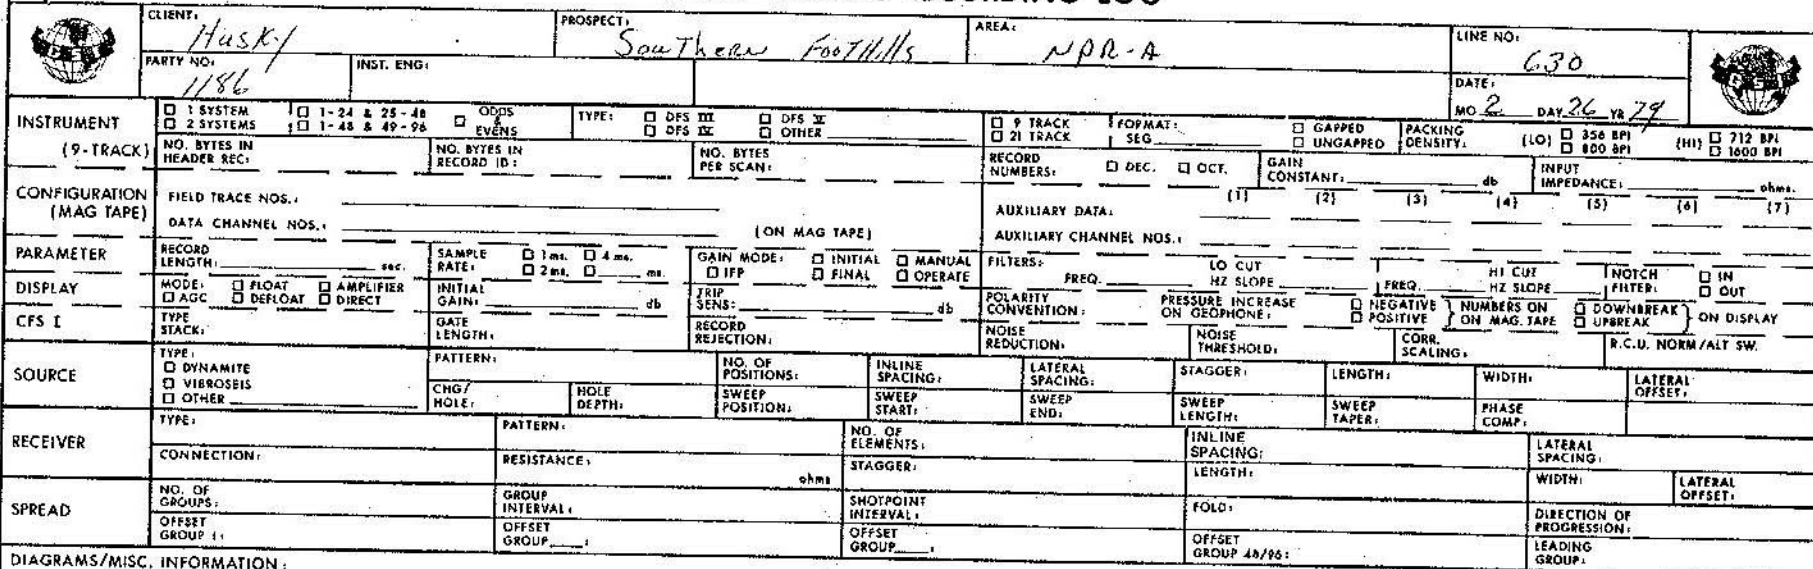 RECORDING LOG
CLIENT: Husky PROSPECT: Southern Foothills AREA: NPR-A LINE NO: 630
PARTY NO: 1186 INST. ENG: DATE: MO. 2 DAY 26 YR 79
INSTRUMENT (9-TRACK)
☐ 1 SYSTEM ☐ 1-24 & 25-48 ☐ ODDS & EVENS TYPE: ☐ DFS III ☐ DFS V ☐ 9 TRACK FORMAT: ☐ GAPPED PACKING DENSITY: (LO) ☐ 356 BPI (HI) ☐ 712 BPI
☐ 2 SYSTEMS ☐ 1-48 & 49-96 ☐ DFS IV ☐ OTHER ☐ 21 TRACK SEG ☐ UNGAPPED ☐ 800 BPI ☐ 1600 BPI
NO. BYTES IN HEADER REC: NO. BYTES IN RECORD ID: NO. BYTES PER SCAN: RECORD NUMBERS: ☐ DEC. ☐ OCT. GAIN CONSTANT: db INPUT IMPEDANCE: ohms.
CONFIGURATION (MAG TAPE)
FIELD TRACE NOS.: AUXILIARY DATA: (1) (2) (3) (4) (5) (6) (7)
DATA CHANNEL NOS.: (ON MAG TAPE) AUXILIARY CHANNEL NOS.:
PARAMETER RECORD LENGTH: sec. SAMPLE RATE: ☐ 1 ms. ☐ 4 ms. ☐ 2 ms. ☐ ms. GAIN MODE: ☐ IFP ☐ INITIAL ☐ FINAL ☐ MANUAL ☐ OPERATE FILTERS: FREQ. LO CUT HZ SLOPE FREQ. HI CUT HZ SLOPE NOTCH FILTER: ☐ IN ☐ OUT
DISPLAY MODE: ☐ FLOAT ☐ AMPLIFIER ☐ AGC ☐ DEFLOAT ☐ DIRECT INITIAL GAIN: db TRIP SENS: db POLARITY CONVENTION: PRESSURE INCREASE ON GEOPHONE: ☐ NEGATIVE ☐ POSITIVE } NUMBERS ON ON MAG. TAPE ☐ DOWNBREAK ☐ UPBREAK } ON DISPLAY
CFS I TYPE STACK: GATE LENGTH: RECORD REJECTION: NOISE REDUCTION: NOISE THRESHOLD: CORR. SCALING: R.C.U. NORM/ALT SW.
SOURCE
TYPE: ☐ DYNAMITE ☐ VIBROSEIS ☐ OTHER PATTERN: NO. OF POSITIONS: INLINE SPACING: LATERAL SPACING: STAGGER: LENGTH: WIDTH: LATERAL OFFSET:
CHG/HOLE: HOLE DEPTH: SWEEP POSITION: SWEEP START: SWEEP END: SWEEP LENGTH: SWEEP TAPER: PHASE COMP:
RECEIVER
TYPE: PATTERN: NO. OF ELEMENTS: INLINE SPACING: LATERAL SPACING:
CONNECTION: RESISTANCE: ohms STAGGER: LENGTH: WIDTH: LATERAL OFFSET:
SPREAD
NO. OF GROUPS: GROUP INTERVAL: SHOTPOINT INTERVAL: FOLD: DIRECTION OF PROGRESSION:
OFFSET GROUP 1: OFFSET GROUP : OFFSET GROUP : OFFSET GROUP 48/96: LEADING GROUP:
DIAGRAMS/MISC. INFORMATION: